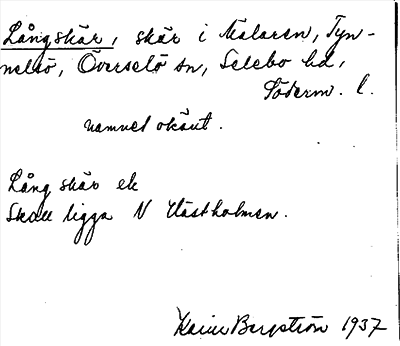 Långskär, skär i Mälaren, Tyn-
nelsö, Överselö sn, Selebo hd,
Söderm. l.
namnet okänt.
Långskär ek
Skall ligga N Hästholmen.
Karin Bergström 1937